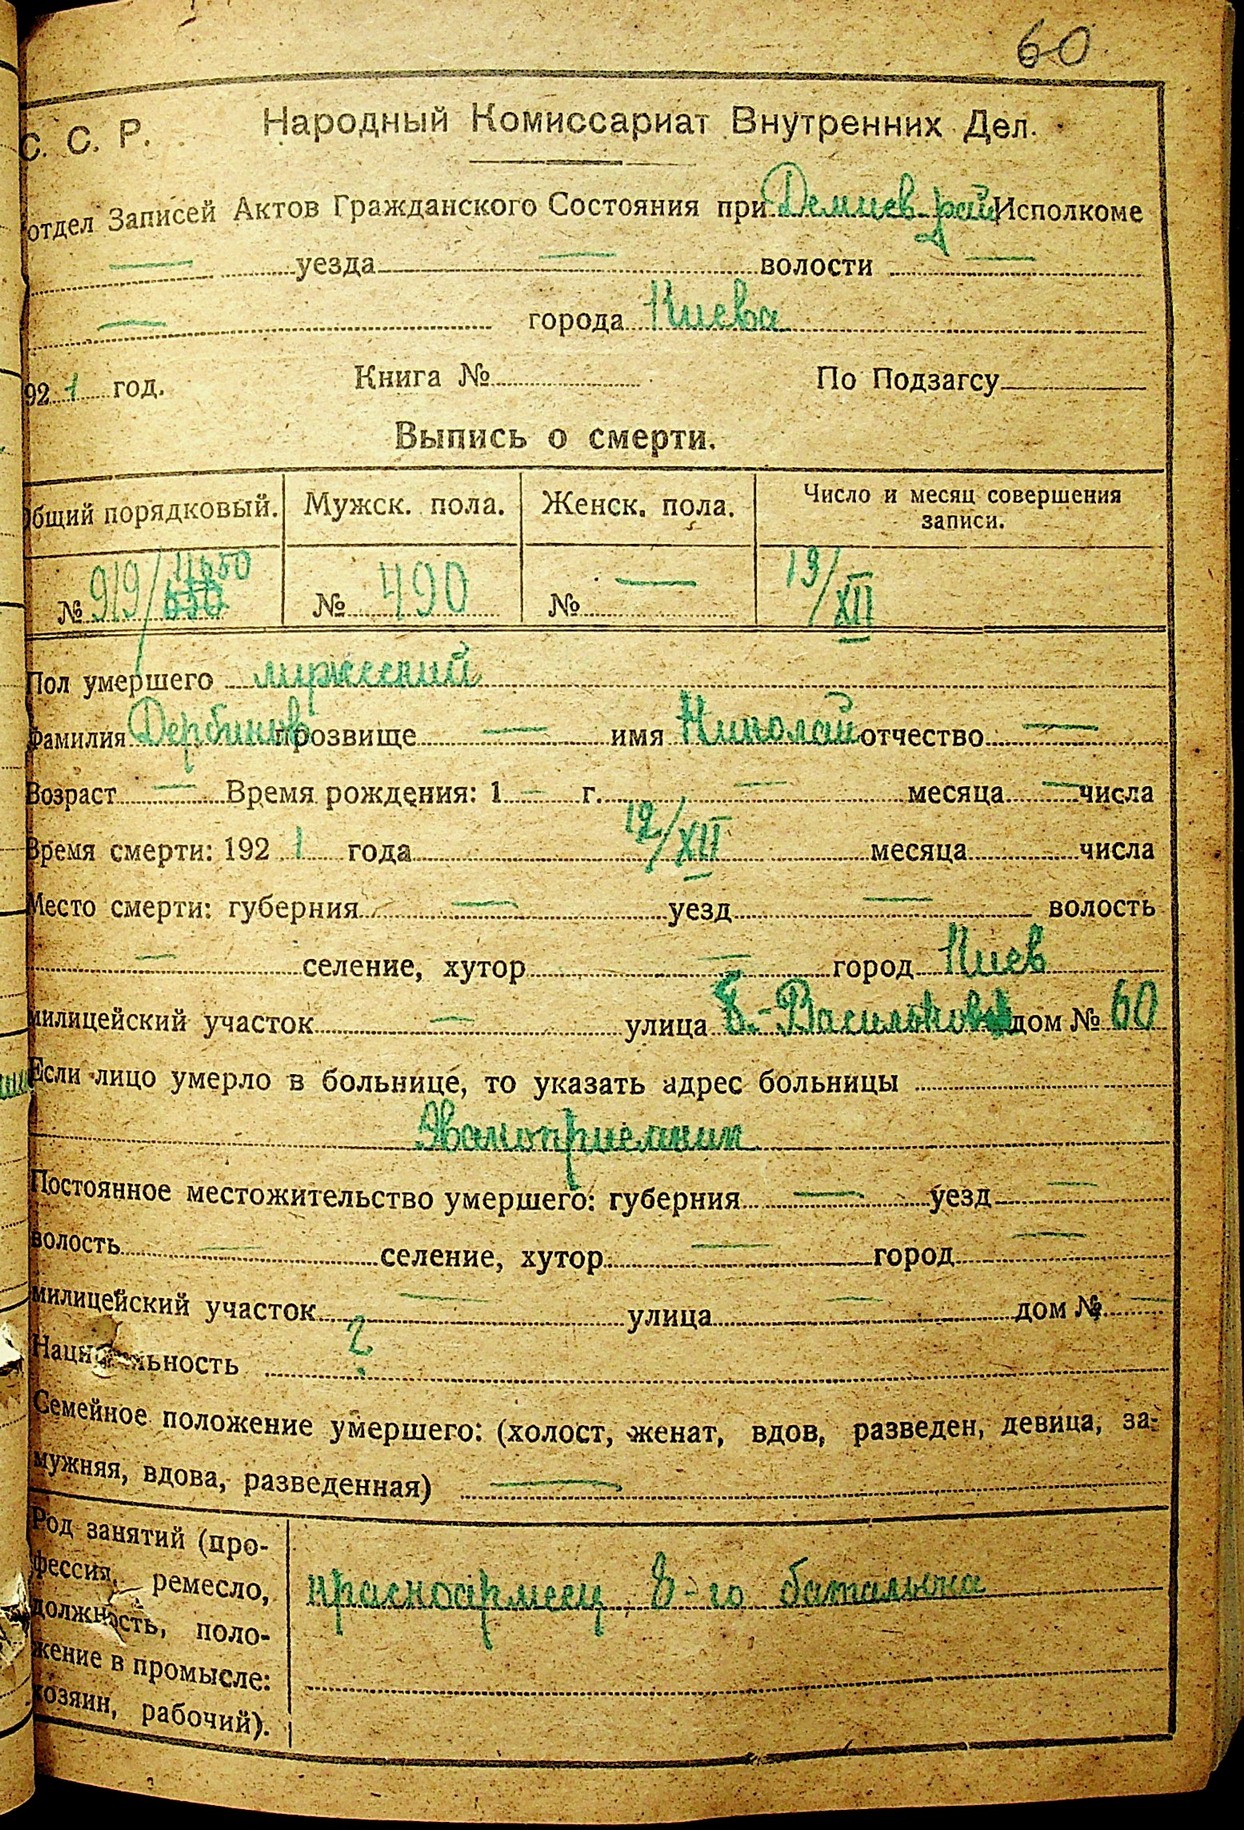 60
С. С. Р. Народный Комиссариат Внутренних Дел.
отдел Записей Актов Гражданского Состояния при Демиев. рай Исполкоме
— уезда — волости —
— города Киева
92 1 год. Книга № По Подзагсу
Выпись о смерти.
Общий порядковый. Мужск. пола. Женск. пола. Число и месяц совершения
записи.
№ 919/ № 490 № — 13/XII
Пол умершего мужеский
Фамилия Дербинов прозвище — имя Николай отчество —
Возраст — Время рождения: 1 — г. — месяца — числа
Время смерти: 192 1 года 12/XII месяца числа
Место смерти: губерния — уезд — волость
— селение, хутор — город Киев
милицейский участок — улица Б.-Васильков дом № 60
Если лицо умерло в больнице, то указать адрес больницы
Эвакоприемник
Постоянное местожительство умершего: губерния — уезд —
волость — селение, хутор — город —
милицейский участок — улица — дом № —
Национальность ?
Семейное положение умершего: (холост, женат, вдов, разведен, девица, за-
мужняя, вдова, разведенная) —
Род занятий (про-
фессия, ремесло,
должность, поло-
жение в промысле:
хозяин, рабочий).
красноармеец 8-го батальона